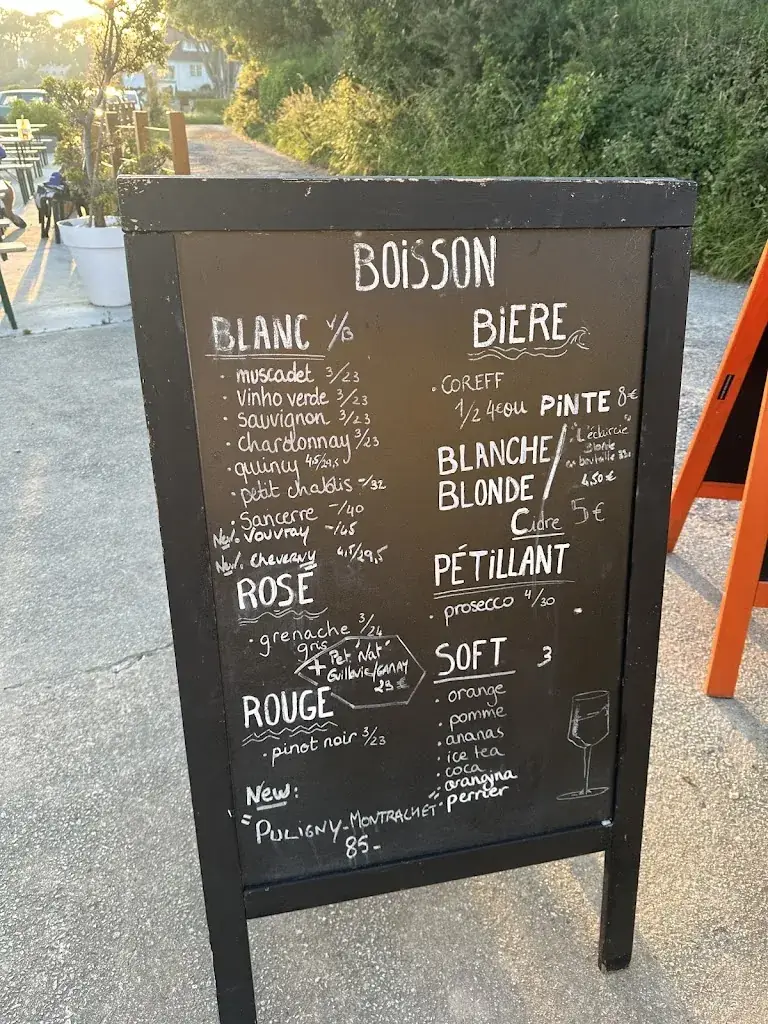 BOISSON
BLANC V/B
· muscadet 3/23
· Vinho verde 3/23
· Sauvignon 3/23
· chardonnay 3/23
· quincy 4,5/29,5
· petit chablis -/32
· Sancerre -/40
New. Vouvray -/45
New. Cheverny 4,5/29,5
ROSÉ
· grenache 3/24
gris
+ Pet 'Nat'
GAMAY
29 €
ROUGE
· pinot noir 3/23
New:
"PULIGNY-MONTRACHET"
85-
BIERE
· COREFF
1/2 4€ ou PINTE 8€
BLANCHE/
BLONDE
L'éclaircie
Blonde
en bouteille 33cl
4,50 €
Cidre 5€
PÉTILLANT
· prosecco 4/30
SOFT 3
· orange
· pomme
· ananas
· ice tea
· coca
· orangina
· perrier